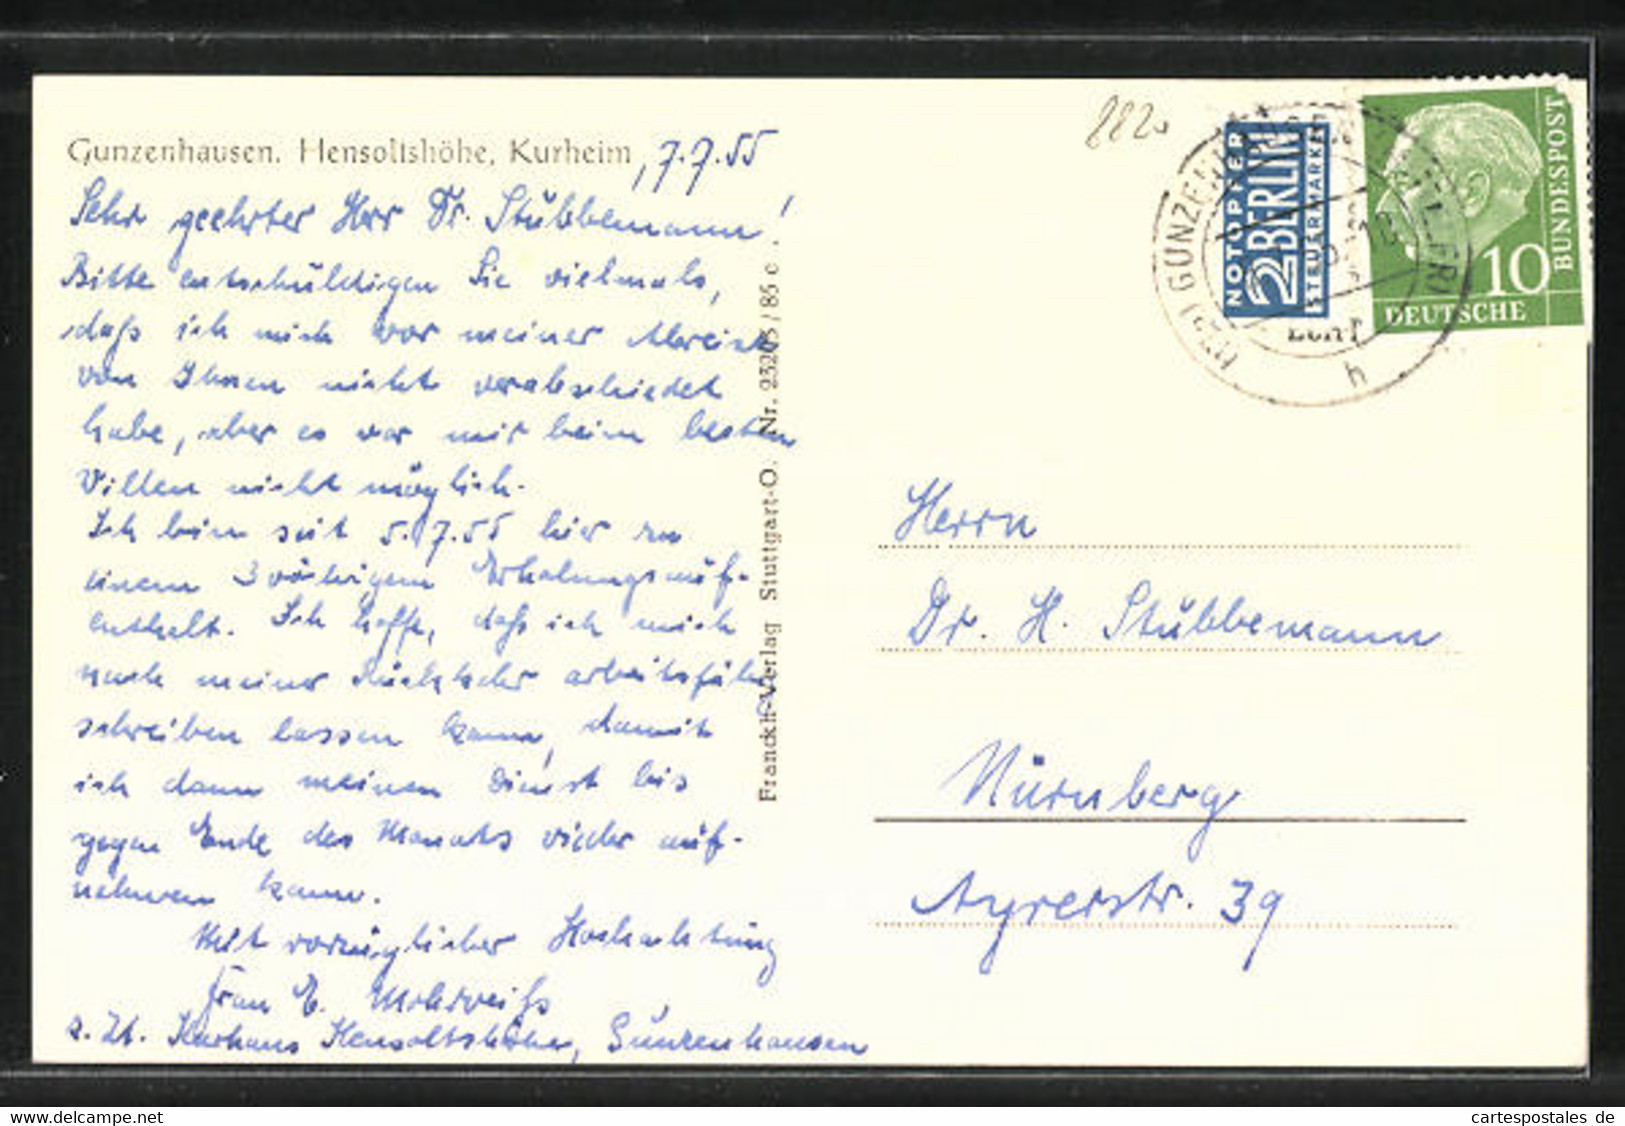 Gunzenhausen. Hensoltshöhe, Kurheim, 7.7.55
Sehr geehrter Herr Dr. Stübbemann!
Bitte entschuldigen Sie vielmals,
daß ich mich vor meiner Abreise
von Ihnen nicht verabschiedet
habe, aber es war mir beim besten
Willen nicht möglich.
Ich bin seit 5.7.55 hier zu
einem 3 wöchigem Erholungsauf-
enthalt. Ich hoffe, daß ich mich
nach meiner Rückkehr arbeitsfähig
schreiben lassen kann, damit
ich dann meinen Dienst bis
gegen Ende des Monats wieder auf-
nehmen kann.
Mit vorzüglicher Hochachtung
Frau E.
z. Zt. Kurhaus Hensoltshöhe, Gunzenhausen
Franckh-Verlag Stuttgart-O. Nr. 23203/85 c
8820
NOTOPFER
2 BERLIN
STEUERMARKE
GUNZENHAUSEN
h
10
DEUTSCHE
BUNDESPOST
Herrn
Dr. H. Stübbemann
Nürnberg
Ayrerstr. 39
www.cartespostales.com
cartespostales de